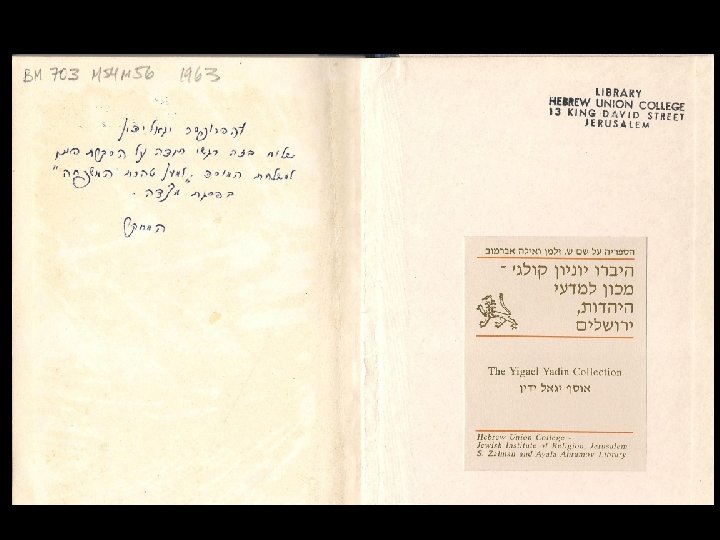 BM 703 M54M56 1963
לפרופסור יגאל ידין
בזה רגשי תודה על
המוסד "למען טהרת המשפחה"
בפסגת "מצדה".
המחבר
LIBRARY
HEBREW UNION COLLEGE
13 KING DAVID STREET
JERUSALEM
הספריה על שם ש. זלמן ואילה אברמוב
היברו יוניון קולג' -
מכון למדעי
היהדות,
ירושלים
The Yigael Yadin Collection
אוסף יגאל ידין
Hebrew Union College -
Jewish Institute of Religion, Jerusalem
S. Zalman and Ayala Abramov Library